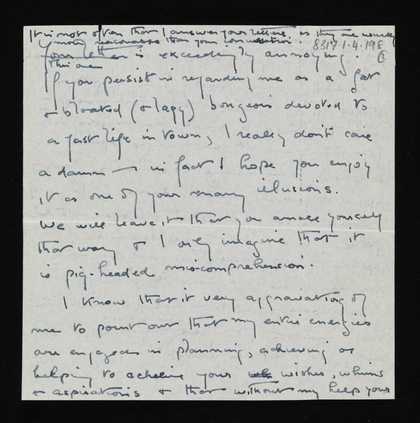 It is not often that I answer your letters, as they are usually
merely reiterations than your conversation.
8317.1.4.198
your letter is exceedingly annoying.
this one
If you persist in regarding me as a fat
& bloated (& lazy) bourgeois devoted to
a fast life in town, I really don't care
a damn — in fact I hope you enjoy
it as one of your many illusions.
We will leave it that you amuse yourself
that way & I only imagine that it
is pig-headed mis-comprehension.
I know that it very aggravating of
me to point out that my entire energies
are engaged in planning, achieving or
helping to achieve your wishes, whims
& aspirations & that without my help your